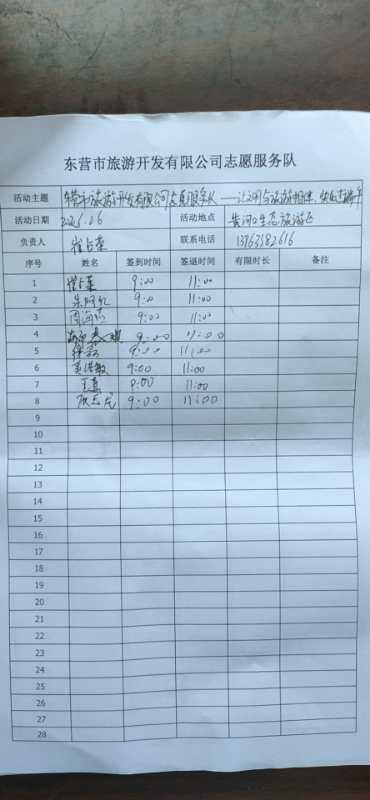 东营市旅游开发有限公司志愿服务队
活动主题 东营市旅游开发有限公司志愿服务队——让文明与旅游相伴
活动日期 活动地点 黄河口生态旅游区
负责人 崔占菜 联系电话 13963382616
序号 姓名 签到时间 签退时间 有限时长 备注
1 9:00 11:00
2 9:00 11:00
3 周海燕 9:00 11:00
4 9:00 11:00
5 9:00 11:00
6 9:00 11:00
7 9:00 11:00
8 9:00 11:00
9
10
11
12
13
14
15
16
17
18
19
20
21
22
23
24
25
26
27
28